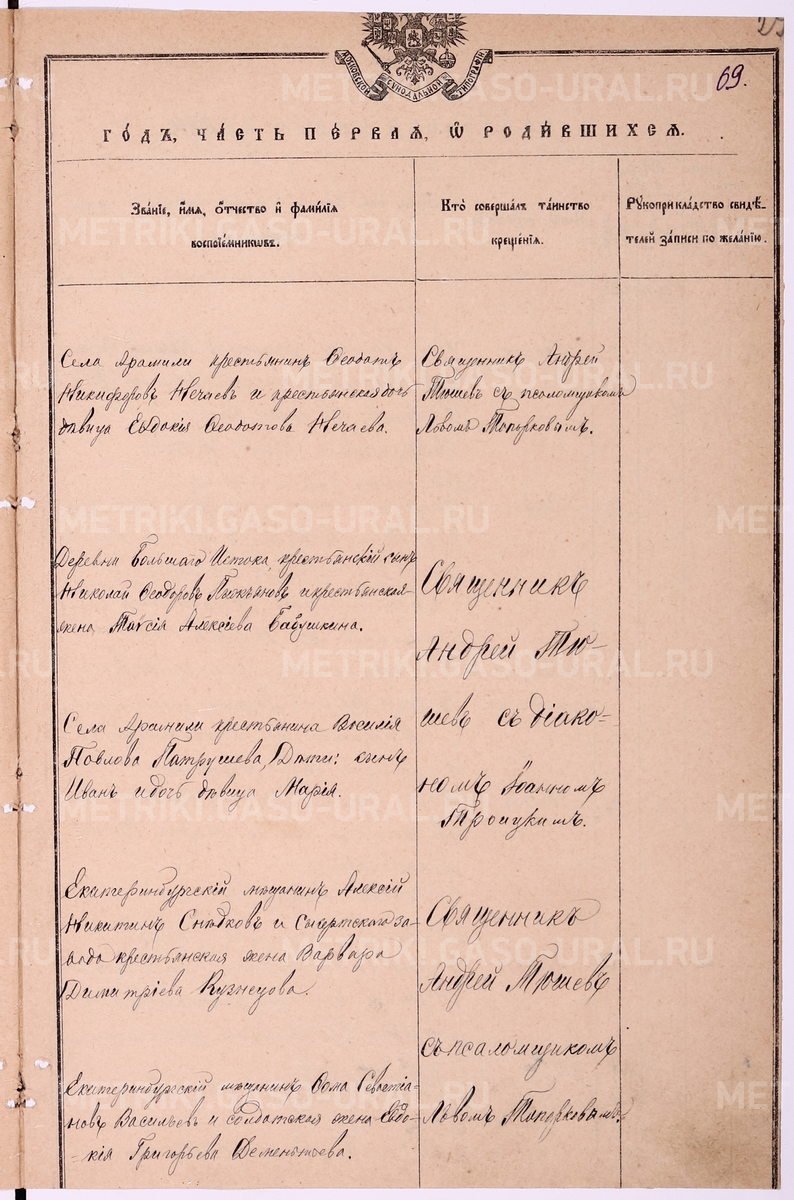 МОСКОВСКОЙ СѴНОДАЛЬНОЙ ТИПОГРАФІИ.
69.
ГОДЪ, ЧАСТЬ ПЕРВАЯ, Ѡ РОДИВШИХСЯ.
Званіе, имя, отчество и фамилія
воспріемниковъ.
Кто совершалъ таинство
крещенія.
Рукоприкладство свидѣ-
телей записи по желанію.
Села Арамили крестьянинъ Ѳеодотъ
Никифоровъ Нечаевъ и крестьянская дочь
дѣвица Евдокія Ѳеодотова Нечаева.
Священникъ Андрей
Тюшевъ съ псаломщикомъ
Львомъ Топорковымъ.
Деревни Большаго Истока, крестьянскій сынъ
Николай Ѳеодоровъ и крестьянская
жена Таисія Алексіева Бабушкина.
Священникъ
Андрей Тю-
шевъ съ діако-
номъ Іоанномъ
Троицкимъ.
Села Арамили крестьянина Василія
Павлова Патрушева, Дѣти: сынъ
Иванъ и дочь дѣвица Марія.
Екатеринбургскій мѣщанинъ Алексій
Никитинъ Снѣдковъ и Сысертскаго за-
вода крестьянская жена Варвара
Димитріева Кузнецова.
Священникъ
Андрей Тюшевъ
съ псаломщикомъ
Львомъ Топорковымъ.
Екатеринбургскій мѣщанинъ Ѳома Севастіа-
новъ Васильевъ и солдатская жена Евдо-
кія Григорьева Дементьева.
METRIKI.GASO-URAL.RU